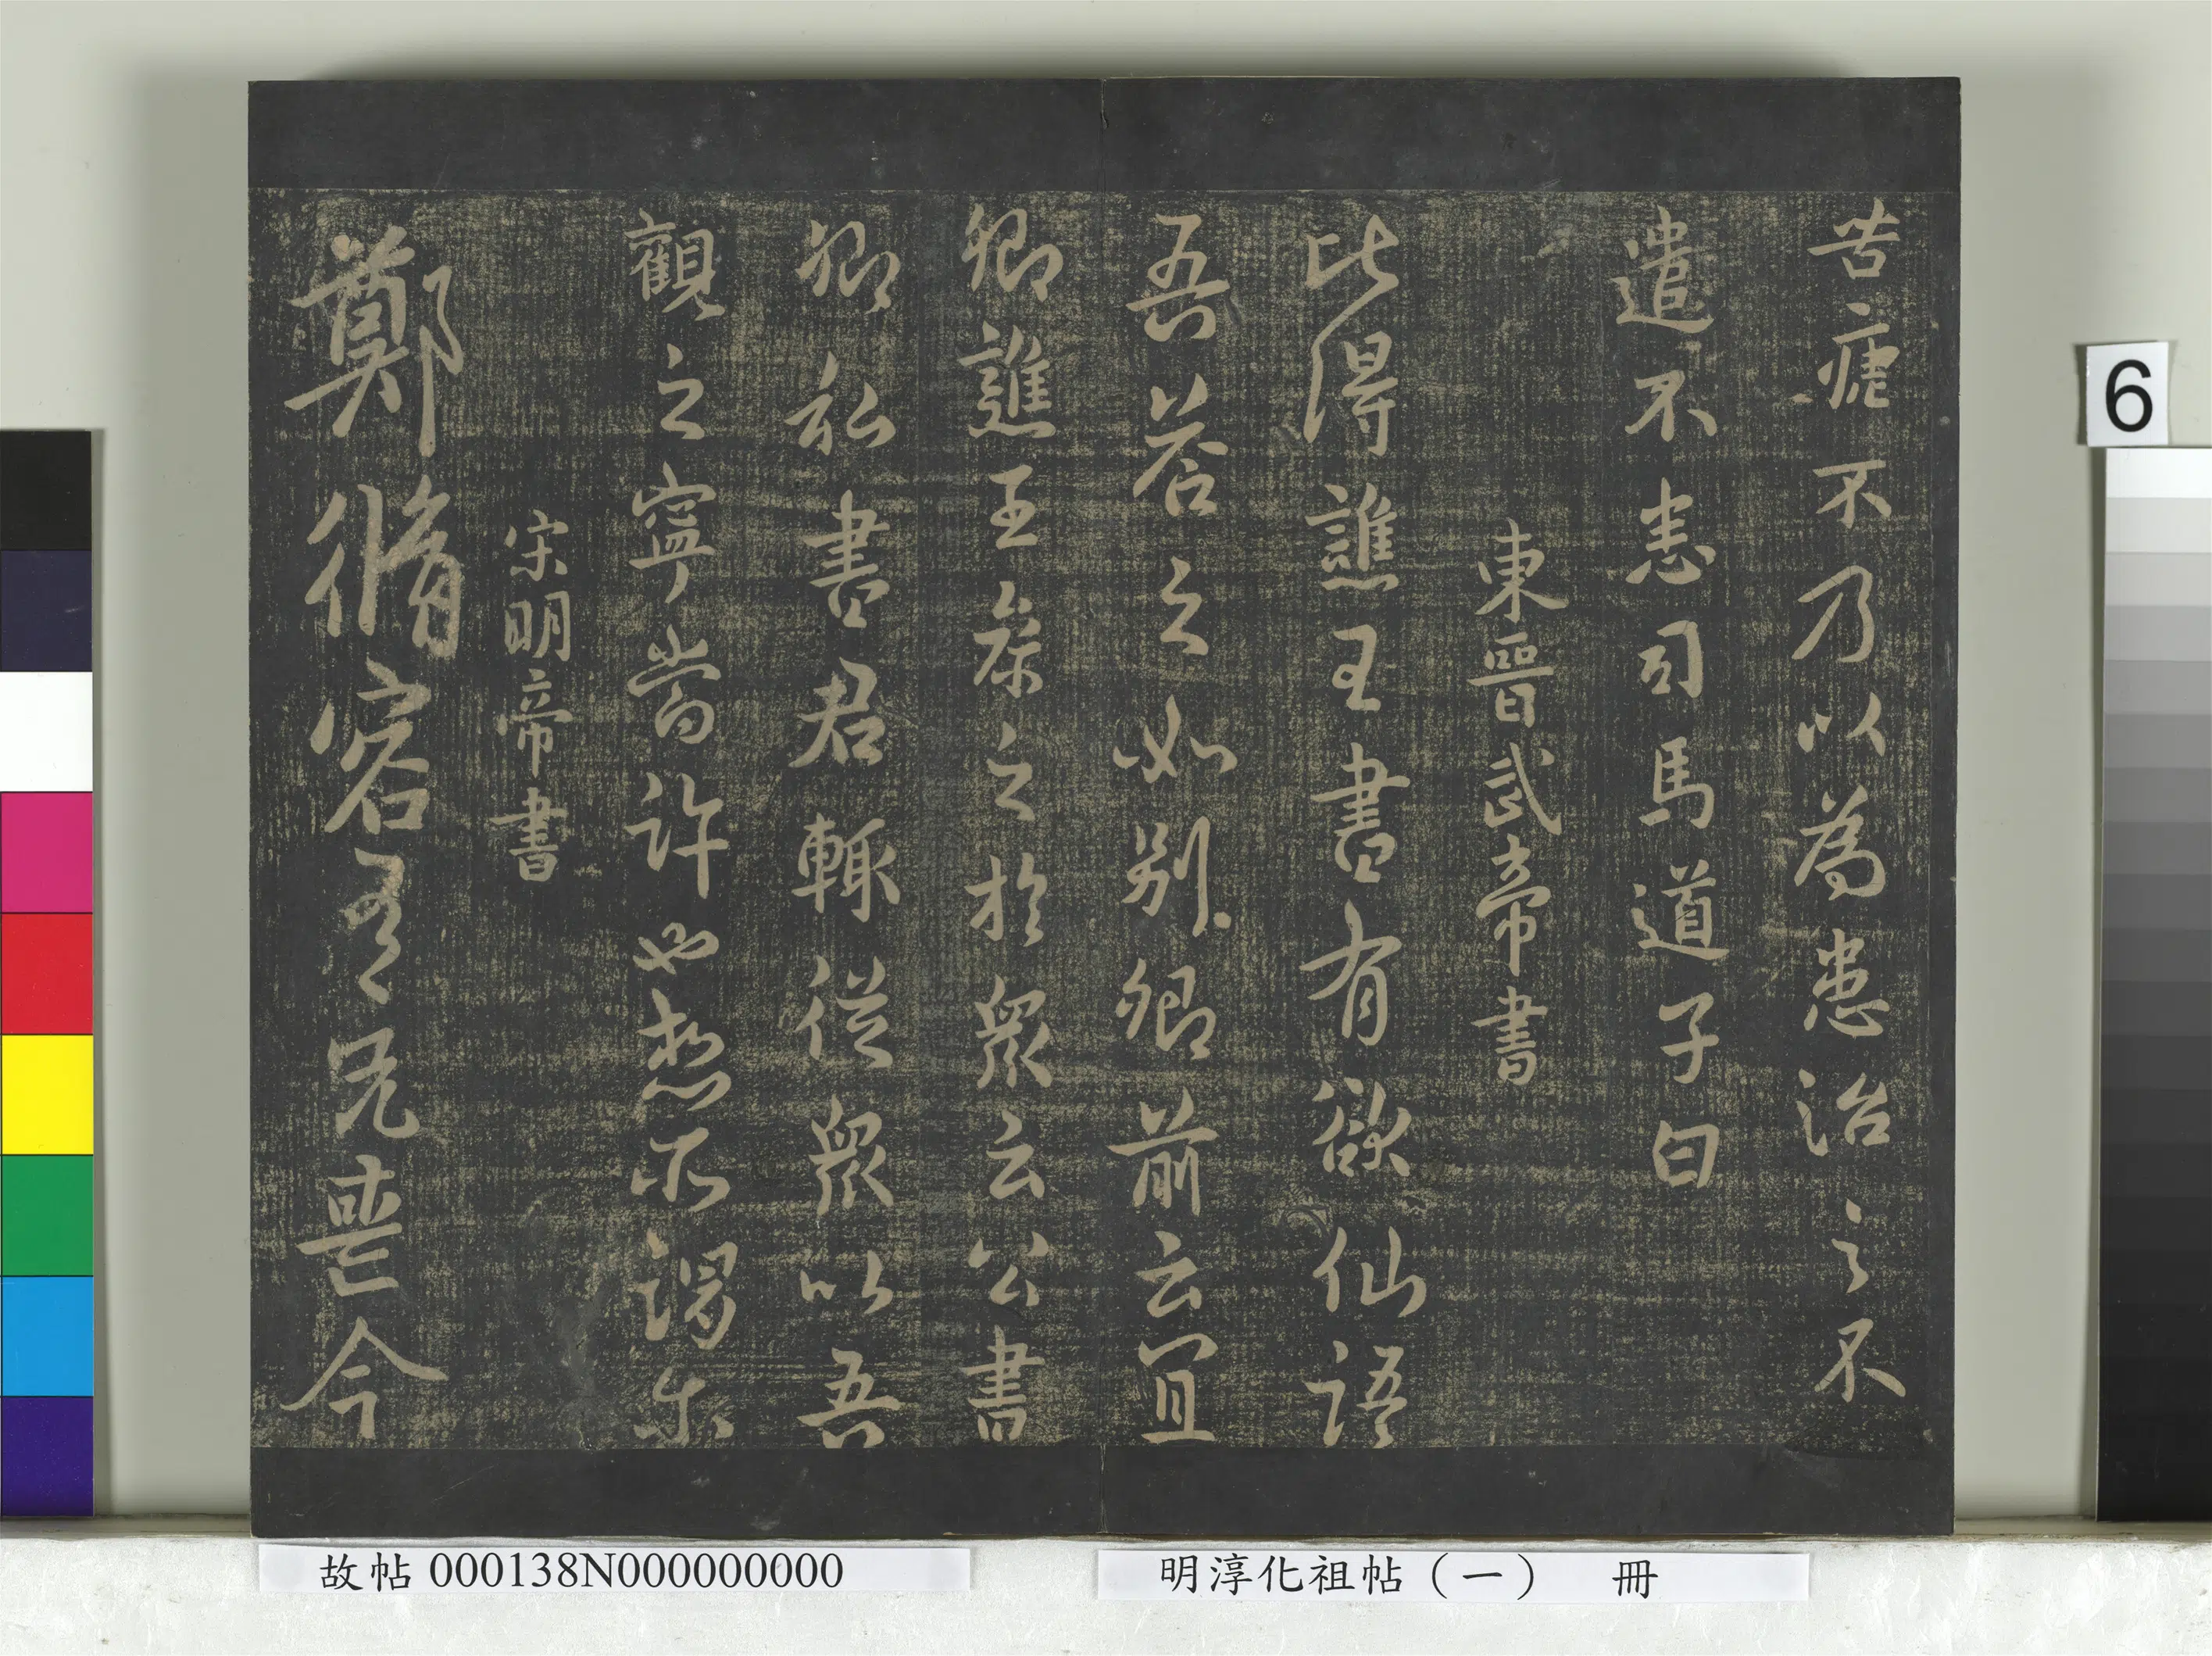 苦瘧不乃以為患治之不
遣不悉司馬道子白
東晉武帝書
此得譙王書有欲仙語
吾答之如別卿前云宜
卿譙王參之於衆云公書
卿私書君輒從衆以吾
觀之寧當許也想
宋明帝書
鄭脩容兄喪今
6
故帖000138N000000000
明淳化祖帖（一） 冊